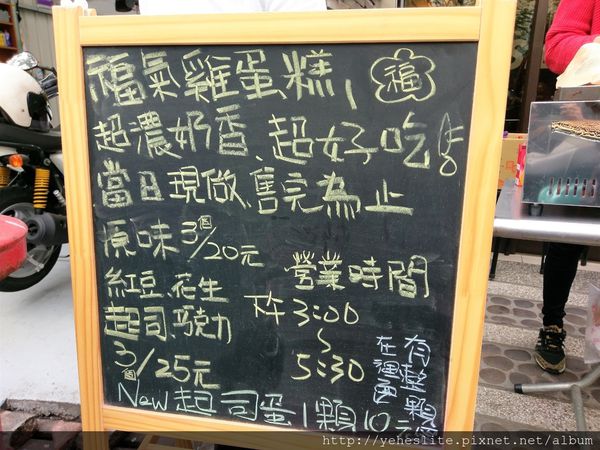 福氣雞蛋糕,
福
超濃奶香、超好吃
當日現做、售完為止
原味 3個/20元
紅豆、花生
起司、巧克力
3個/25元
營業時間
3:00
~
5:30
有整顆
在裡面
New 起司蛋1顆10元
http://yeheslite.pixnet.net/album